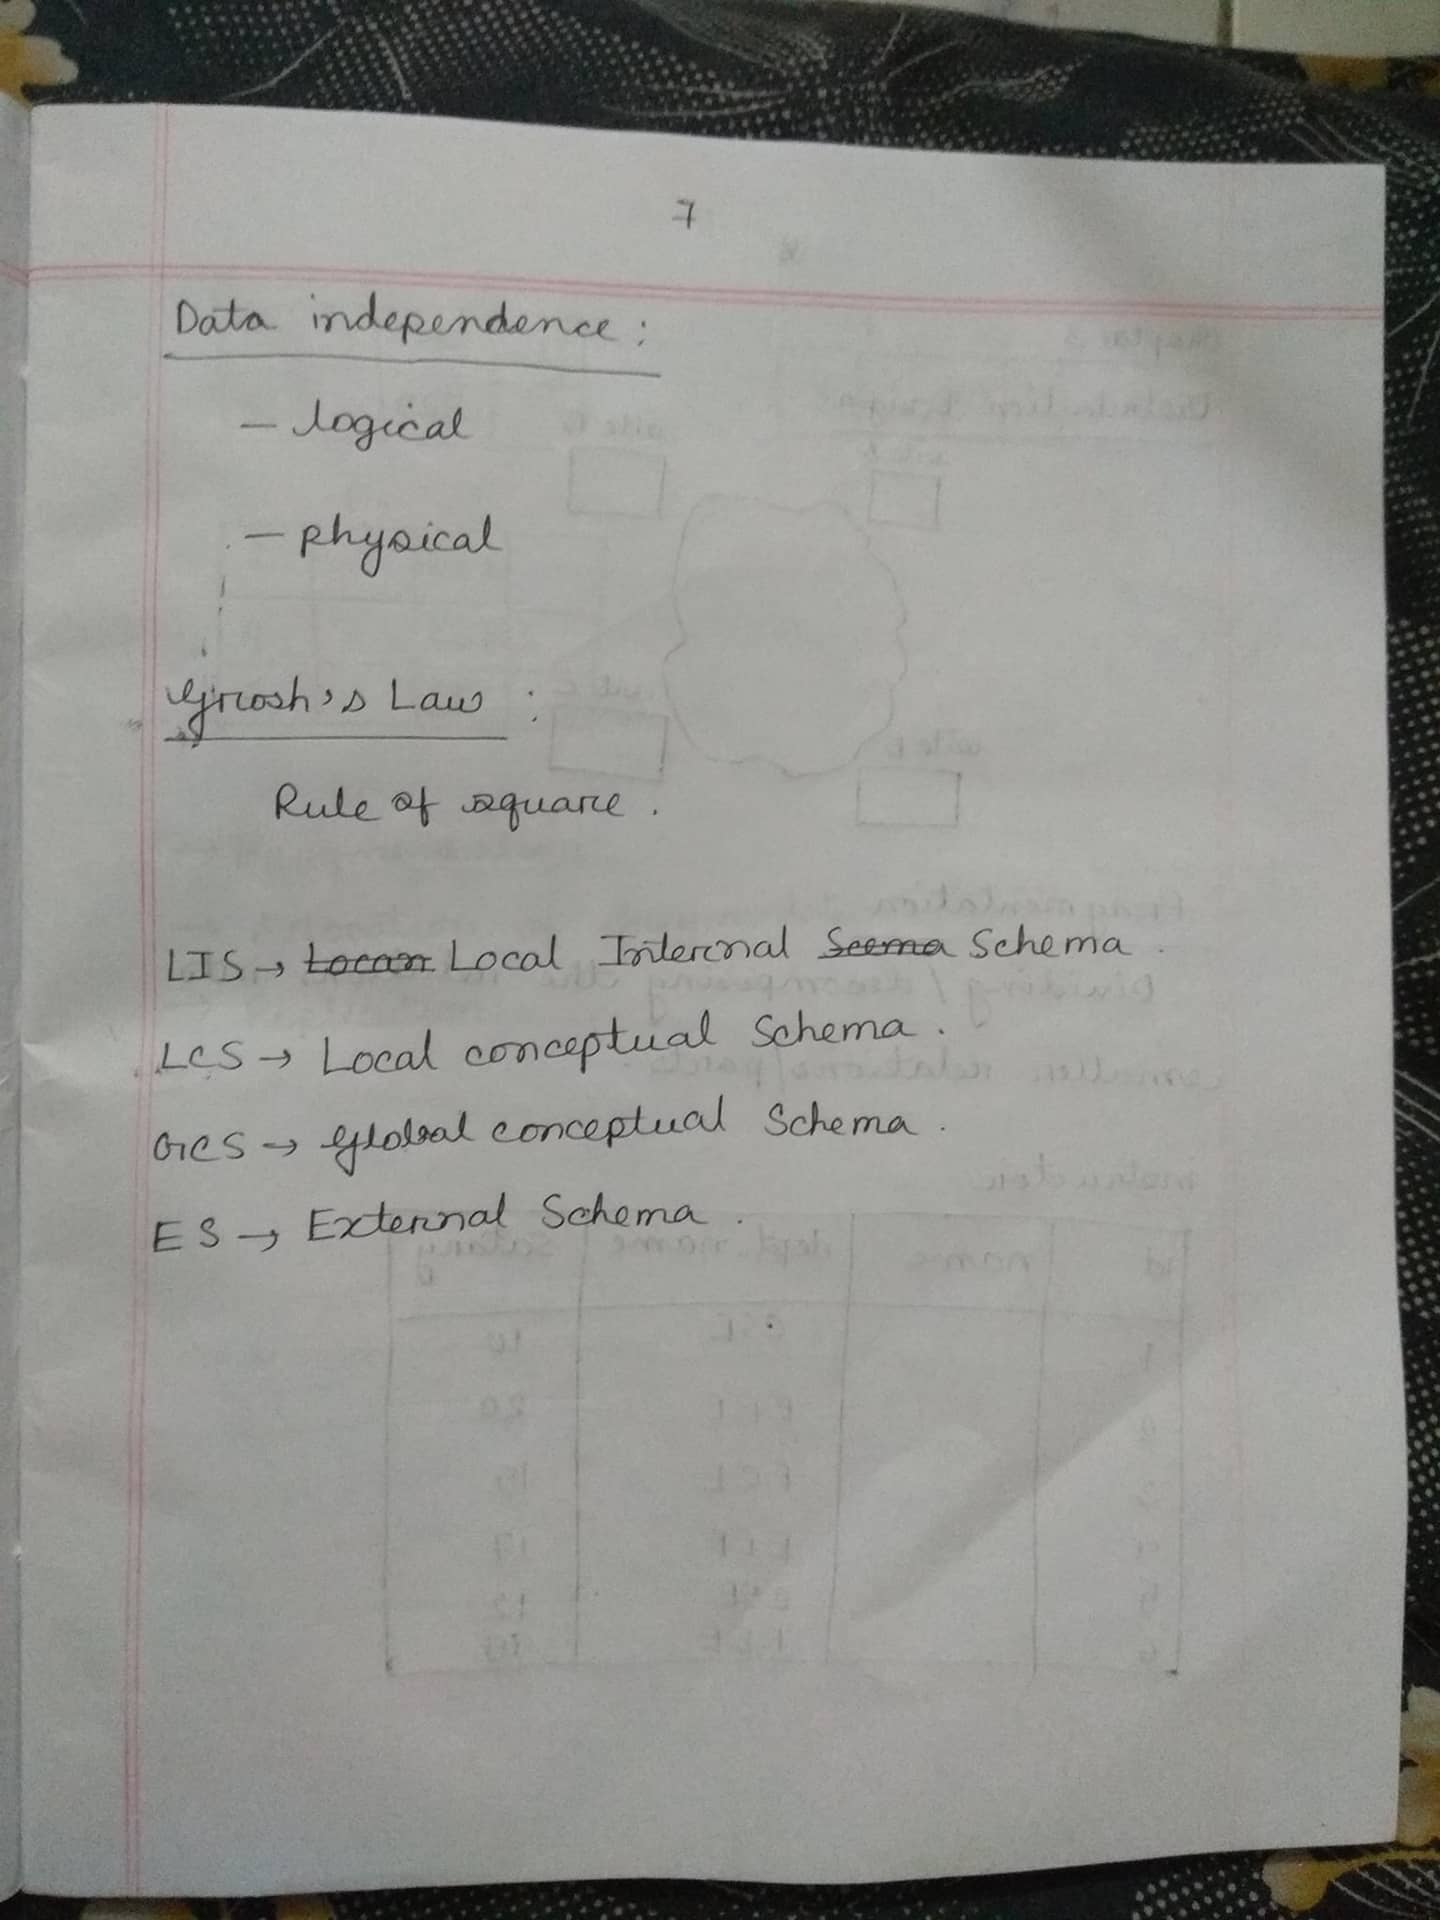 7
Data independence :
- logical
- physical
Grosh's Law :
Rule of square .
LIS → Locan Local Internal Scema Schema .
LCS → Local conceptual Schema .
GCS → Global conceptual Schema .
ES → External Schema .